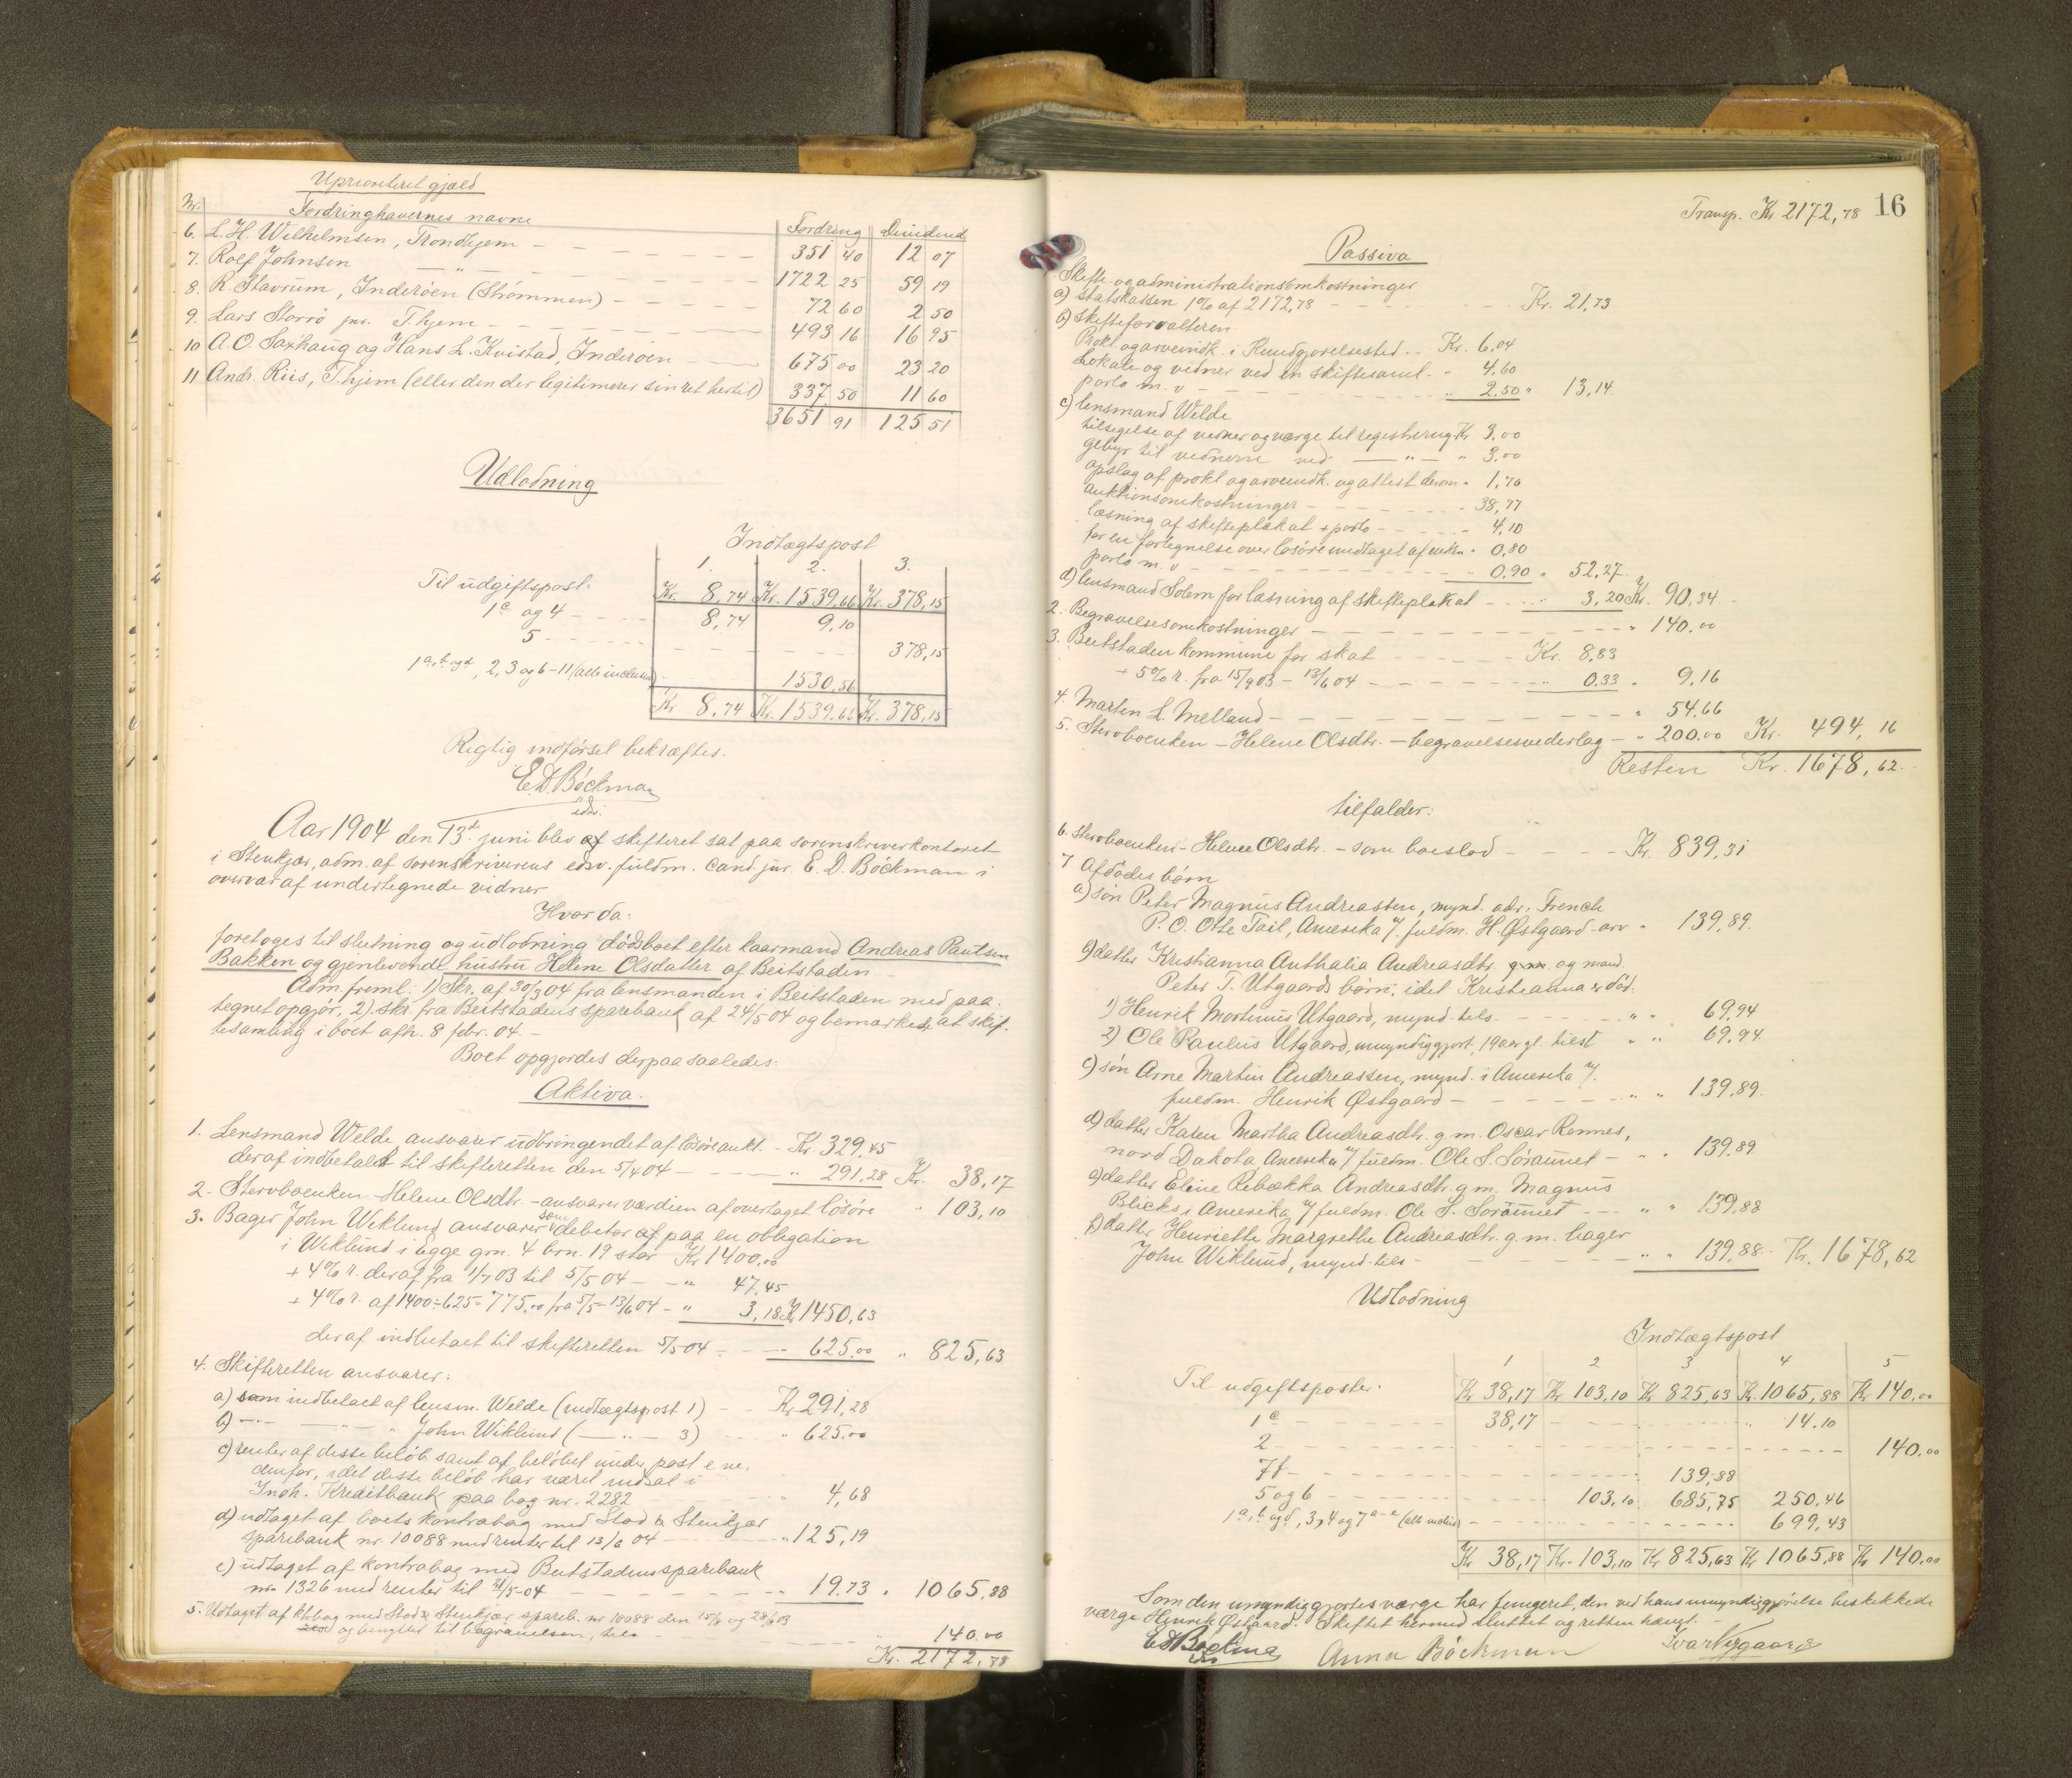 Uprioriteret gjæld
Nr. Fordringhavernes navne Fordring Dividende
6. L. H. Wilhelmsen, Trondhjem - - - 351 40 12 07
7. Rolf Johnsen — " — - - - 1722 25 59 19
8. R. Stavrum, Inderøen (Strømmen) - - - 72 60 2 50
9. Lars Storrø jnr. T.hjem - - - 493 16 16 95
10 A. O. Saxhaug og Hans L. Kvistad, Inderøen - - 675 00 23 20
11 Andr. Riis, T.hjem (eller den der legitimerer sin ret hertil) 337 50 11 60
3651 91 125 51
Udlodning
Indtægtspost
1. 2. 3.
Til udgiftspost: Kr. 8,74 Kr. 1539,66 Kr. 378,15
1c og 4 - - - 8,74 9,10
5 - - - 378,15
1a, b og d, 2, 3 og 6-11 (alle inclusive) 1530,56
Kr. 8,74 Kr. 1539,66 Kr. 378,15
Rigtig indførsel bekræftes.
E. D. Böckman
edsv.
Aar 1904 den 13de juni blev af skifteret sat paa sorenskriverkontoret
i Stenkjær, adm. af sorenskriverens edsv. fuldm. cand. jur. E. D. Böckman i
overvær af undertegnede vidner
Hvorda:
foretoges til slutning og udlodning dødsboet efter kaarmand Andreas Paulsen
Bakken og gjenlevende hustru Helene Olsdatter af Beitstaden
Adm. freml. 1) Skr. af 30/3 04 fra lensmanden i Beitstaden med paa-
tegnet opgjør, 2) skr. fra Beitstadens sparebank af 24/5 04 og bemærkede at skif-
tesamling i boet afh. 8 febr. 04. -
Boet opgjordes derpaa saaledes:
Aktiva.
1. Lensmand Welde ansvarer udbringendet af løsøreaukt. - Kr. 329,45
deraf indbetalt til skifteretten den 5/4 04 - - - " 291,28 Kr. 38,17
2. Stervboenken - Helene Olsdtr. - ansvarer værdien af overtaget løsøre " 103,10
3. Bager John Wiklund ansvarer som debitor af paa en obligation
i Wiklund i Egge grn. 4 brn. 19 stor Kr. 1400,00
+ 4% r. deraf fra 1/7 03 til 5/5 04 - - " 47,45
+ 4% r. af 1400÷625=775.00 fra 5/5-13/6 04 - " 3,18 Kr. 1450,63
deraf indbetalt til skifteretten 5/5 04 - - - 625.00 " 825,63
4. Skifteretten ansvarer:
a) som indbetalt af lensm. Welde (indtægtspost 1) - - Kr. 291,28
b) —"— —"— " John Wiklund (—"— 3) - - " 625.00
c) renter af disse beløb samt af beløbet under post e ne-
denfor, idet disse beløb har været indsat i
Indh. Kreditbank paa bog nr. 2282 " 4,68
d) udtaget af boets kontrabog med Stod & Stenkjær
sparebank nr. 10088 med renter til 13/6 04 - - - " 125,19
e) udtaget af kontrabog med Beitstadens sparebank
nr. 1326 med renter til 31/5-04 - - - " 19.73 " 1065,88
5. Udtaget af ktrbog med Stod & Stenkjær spareb. nr 10088 den 15/8 og 28/8 03
og benyttet til begravelsen, tils. - - - " 140.00
Kr. 2172,78
16
Transp. Kr 2172,78
Passiva
1. Skifte- og administrationsomkostninger
a) statskassen 1% af 2172,78 - - - Kr. 21,73
b) skifteforvalteren
Prokl. og arveindk. i Kundgjørelsestid. - - Kr. 6,04
Lokale og vidner ved en skiftesaml. - " 4,60
porto m. v - - - " 2.50 " 13,14
c) lensmand Welde
tilsigelse af vidner og værge til registrering Kr. 3,00
gebyr til vidnerne ved —"— " 3.00
opslag af prokl og arveindk. og attest derom " 1,70
auktionsomkostninger - - - " 38,77
læsning af skifteplakat + porto - - - " 4,10
for en fortegnelse over løsøre modtaget af enken " 0,80
porto m. v - - - " 0.90 " 52,27
d) lensmand Solem for læsning af skifteplakat - - - " 3,20 Kr. 90,34
2. Begravelsesomkostninger - - - " 140.00
3. Beitstaden kommune for skat - - - Kr. 8,83
+ 5% r. fra 15/9 03 - 13/6 04 - - - " 0.33 " 9,16
4. Marten L. Melland - - - " 54,66
5. Stervboenken - Helene Olsdtr. - begravelsesvederlag - " 200.00 Kr. 494,16
Resten Kr. 1678,62
tilfalder:
6. Stervboenken - Helene Olsdtr. - som boeslod - - - Kr. 839,31
7 Afdødes børn
a) søn Peter Magnus Andreassen, mynd. adr. French
P.O. Otte Tail, Amerika v/ fuldm. H. Østgaard - arv " 139,89.
b) datter Kristianna Anthalia Andreasdtr. g.m. og mand
Peter T. Utgaards børn, idet Kristianna er død.
1) Henrik Mortinus Utgaard, mynd. tils. - - - " " 69,94
2) Ole Paulus Utgaard, umyndiggjort, 19 aar gl. tilst " " 69,94
c) søn Arne Martin Andreassen, mynd. i Amerika v/.
fuldm. Henrik Østgaard - - - " " 139,89.
d) datter Karen Martha Andreasdtr. g. m. Oscar Rennes,
nord Dakota Amerika v/ fuldm. Ole S. Søraunet - " " 139,89
e) datter Eline Rebækka Andreasdtr. g m. Magnus
Blicks i Amerika v/ fuldm. Ole S. Søraunet - - - " " 139,88
f) datter Henriette Margrethe Andreasdtr. g. m. bager
John Wiklund, mynd. tils - - - " " 139,88. Kr. 1678,62
Udlodning
Indtægtspost
1 2 3 4 5
Til udgiftsposter. Kr 38,17 Kr. 103,10 Kr 825,63 Kr. 1065,88 Kr 140,00
1c - - - 38,17 - - - " 14.10
2 - - - 140.00
7f - - - 139,88
5 og 6 - - - 103,10 685,75 250,46
1a, b og d, 3, 4 og 7a-e (alle inclus) - - - 699,43
Kr 38,17 Kr. 103,10 Kr 825,63 Kr 1065,88 Kr 140.00
Som den umyndiggjortes værge har fungeret, den ved hans umyndiggjørelse beskikkede
værge Henrik Østgaard. Skiftet hermed sluttet og retten hævet. -
E D Böckman Anna Böckman Ivar Nygaard